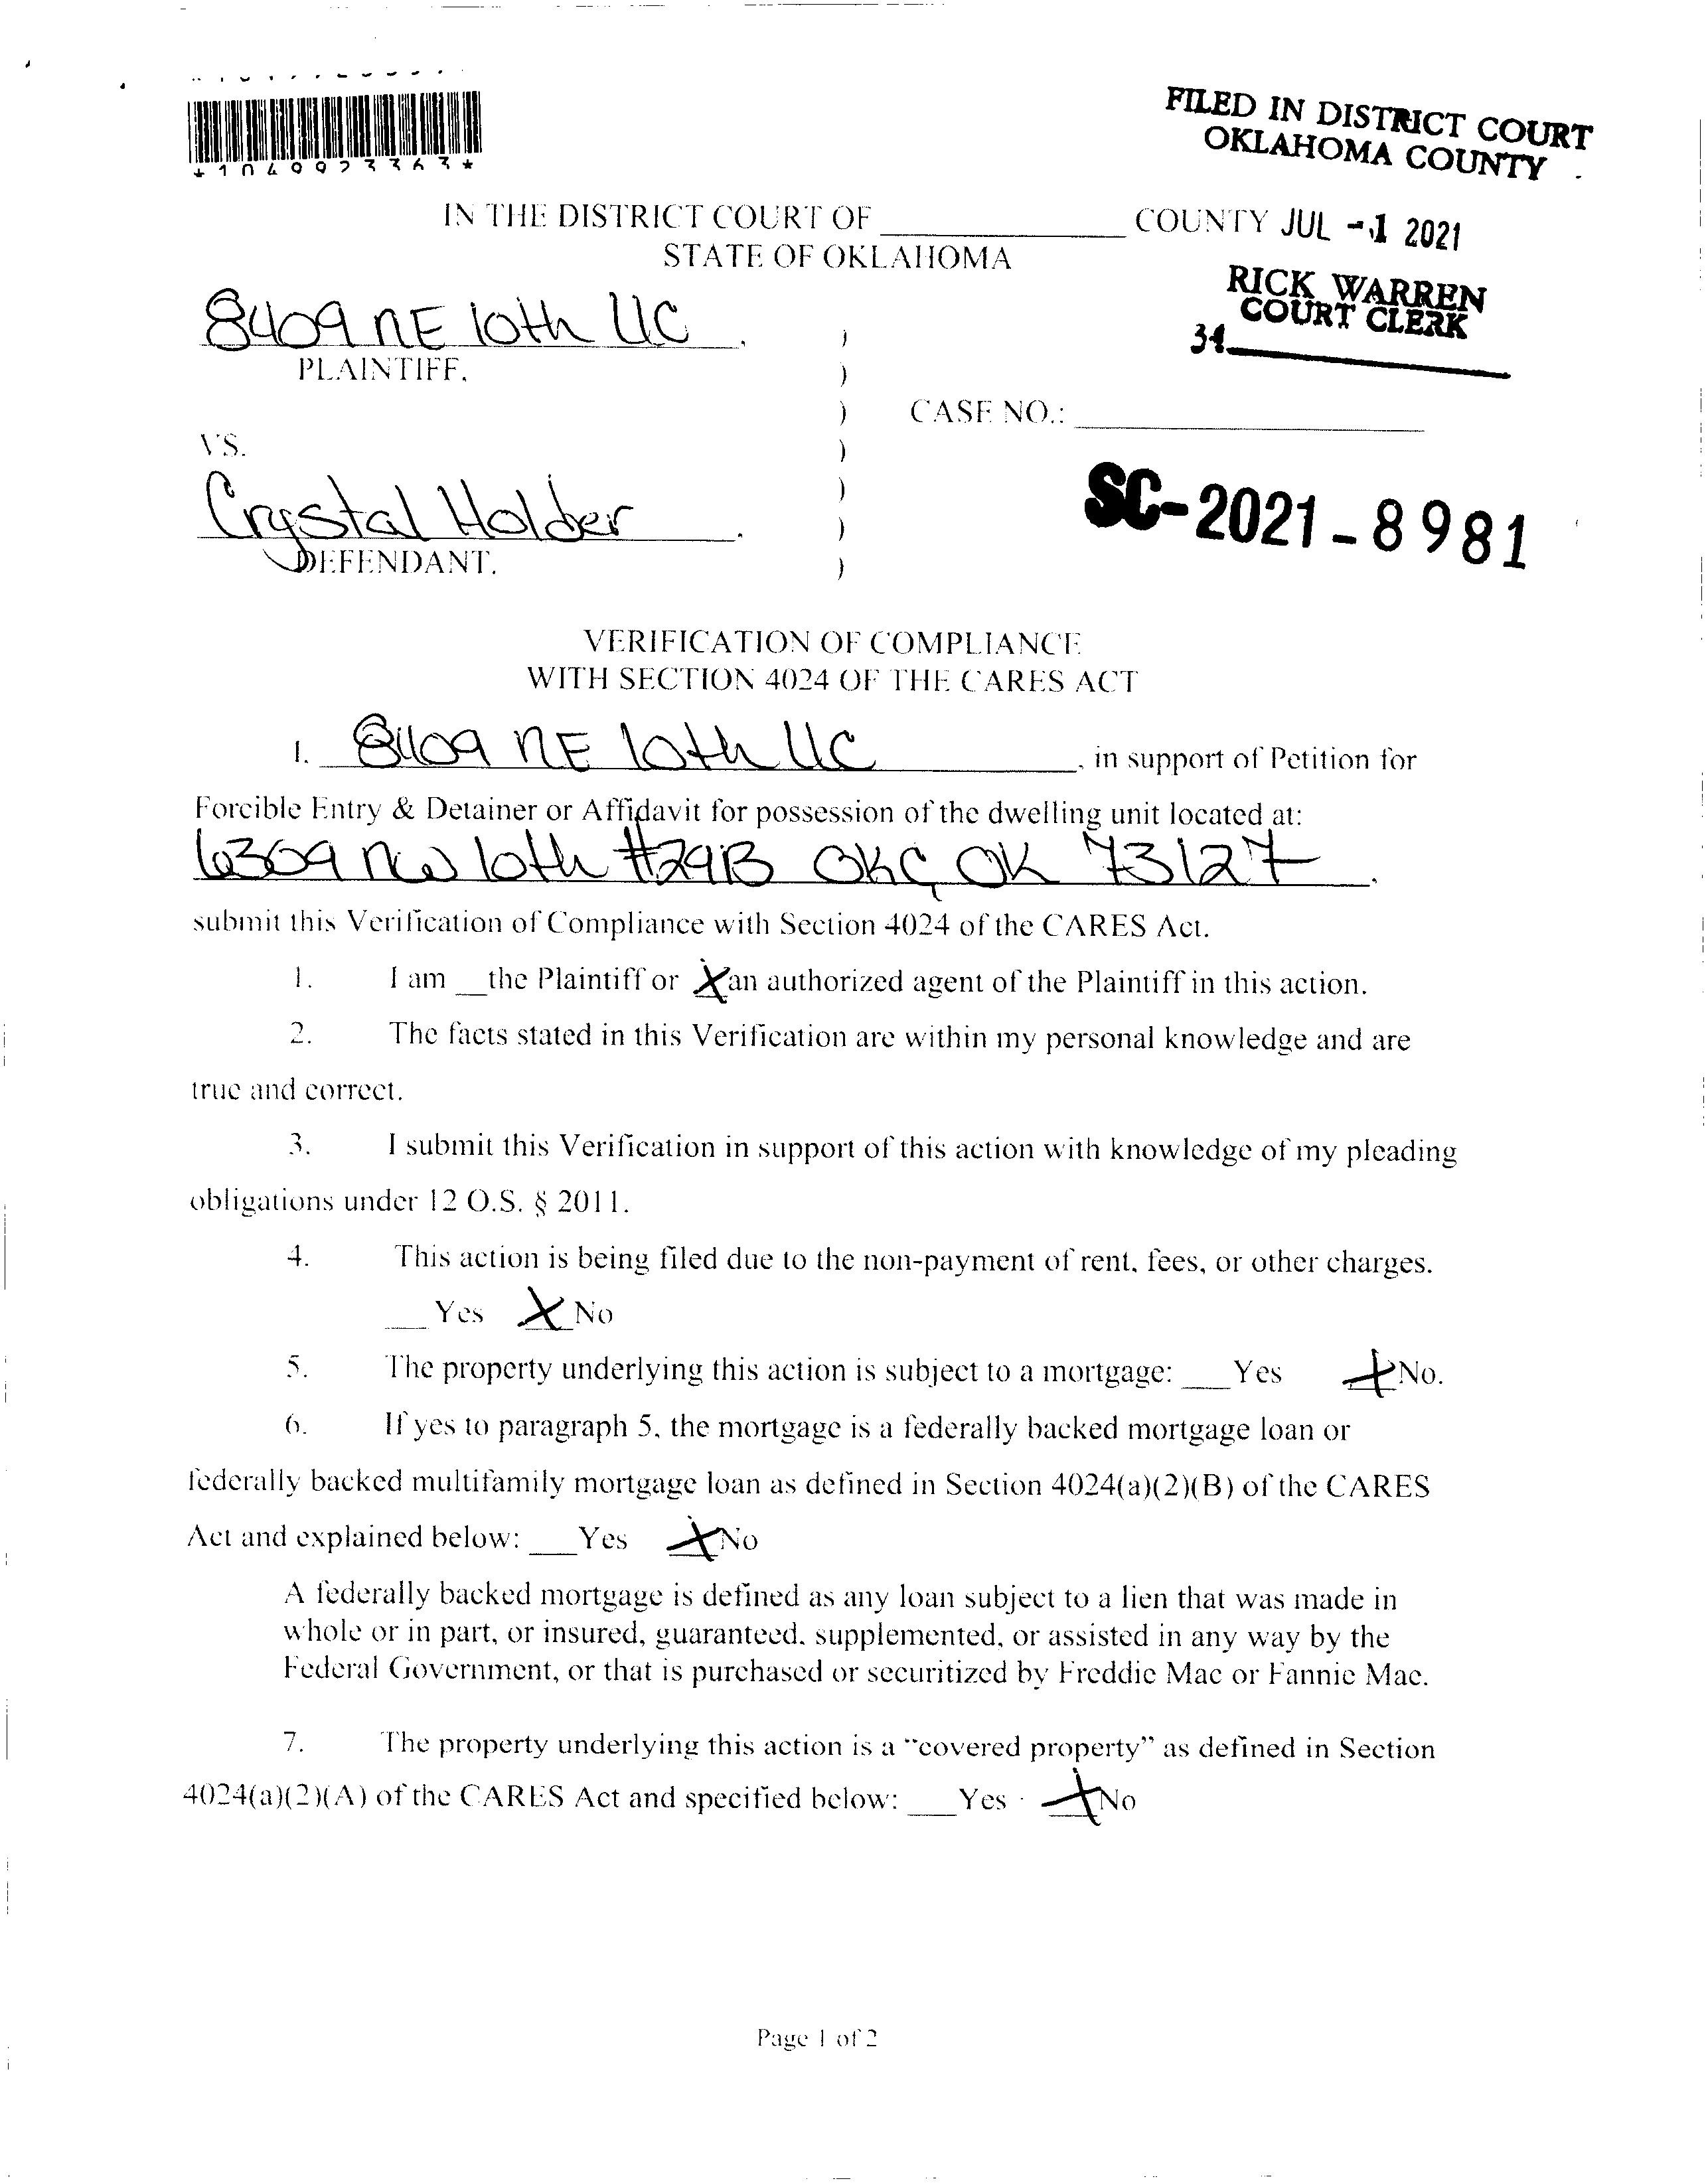 FILED IN DISTRICT COURT
OKLAHOMA COUNTY
IN THE DISTRICT COURT OF ____________ COUNTY JUL -1 2021
STATE OF OKLAHOMA
RICK WARREN
COURT CLERK
34
8409 NE 10th LLC,
PLAINTIFF,
CASE NO.:
VS.
SC-2021-8981
Crystal Holder,
DEFENDANT.
VERIFICATION OF COMPLIANCE
WITH SECTION 4024 OF THE CARES ACT
I, 8409 NE 10th LLC, in support of Petition for
Forcible Entry & Detainer or Affidavit for possession of the dwelling unit located at:
6309 NW 10th #29B OKC, OK 73127.
submit this Verification of Compliance with Section 4024 of the CARES Act.
1. I am __the Plaintiff or X an authorized agent of the Plaintiff in this action.
2. The facts stated in this Verification are within my personal knowledge and are
true and correct.
3. I submit this Verification in support of this action with knowledge of my pleading
obligations under 12 O.S. § 2011.
4. This action is being filed due to the non-payment of rent, fees, or other charges.
___ Yes X No
5. The property underlying this action is subject to a mortgage: ___ Yes X No.
6. If yes to paragraph 5, the mortgage is a federally backed mortgage loan or
federally backed multifamily mortgage loan as defined in Section 4024(a)(2)(B) of the CARES
Act and explained below: ___ Yes X No
A federally backed mortgage is defined as any loan subject to a lien that was made in
whole or in part, or insured, guaranteed, supplemented, or assisted in any way by the
Federal Government, or that is purchased or securitized by Freddie Mac or Fannie Mac.
7. The property underlying this action is a "covered property" as defined in Section
4024(a)(2)(A) of the CARES Act and specified below: ___ Yes X No
Page 1 of 2